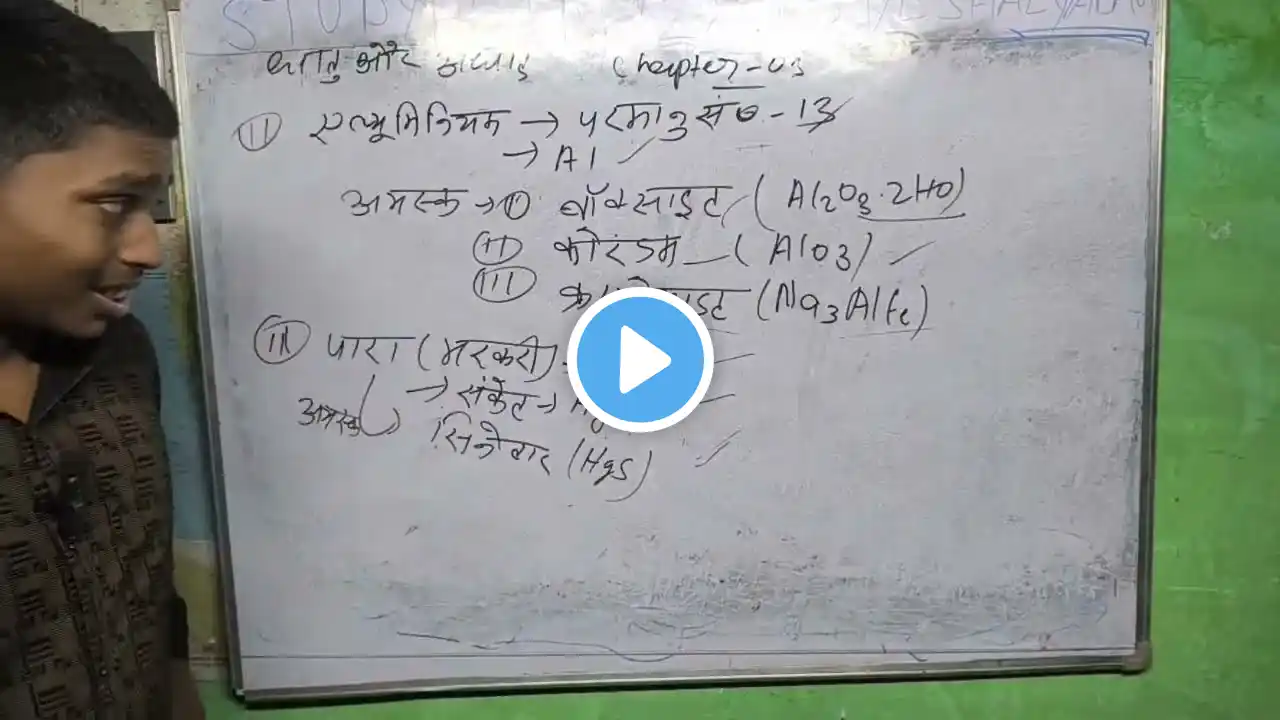 STUDY
धातु और अधातु Chapter-03
II एल्यूमिनियम → परमाणु सं० - 13
→ Al
अयस्क → I बॉक्साइट (Al2O3.2HO)
II कोरंडम (AlO3)
III (Na3AlF6)
III पारा (मरकरी)
→ संकेत → Hg
अयस्क → सिनेबार (HgS)